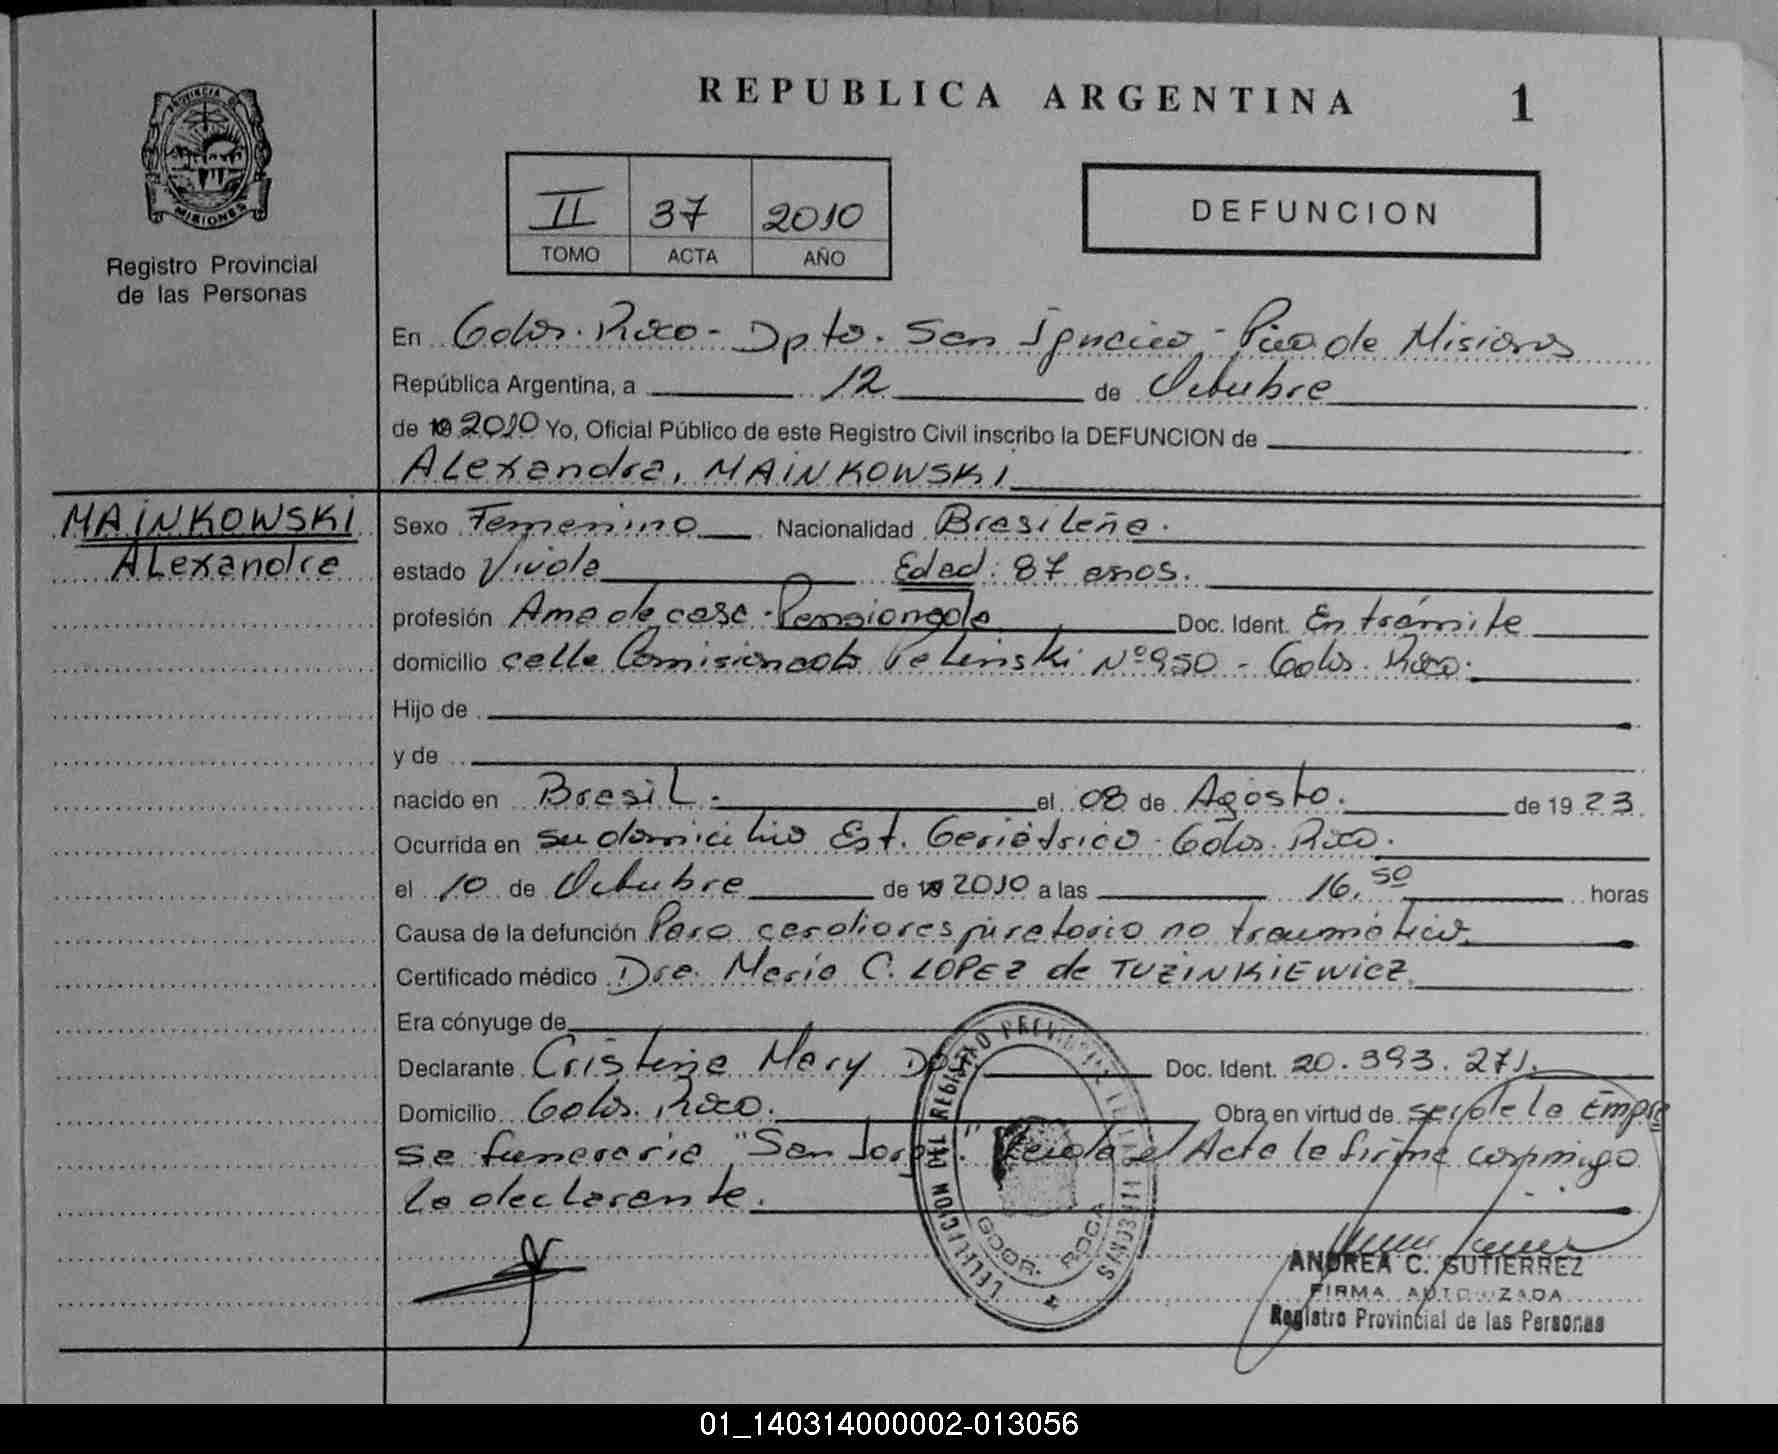 REPUBLICA ARGENTINA 1
PROVINCIA DE
MISIONES
Registro Provincial
de las Personas
II 37 2010
TOMO ACTA AÑO
DEFUNCION
En Gdor. Roca - Dpto. San Ignacio - Pcia de Misiones
República Argentina, a 12 de Octubre
de 19 2010 Yo, Oficial Público de este Registro Civil inscribo la DEFUNCION de
Alexandra, MAINKOWSKI
MAINKOWSKI
Alexandra
Sexo Femenino Nacionalidad Brasileña.
estado Viuda Edad: 87 años.
profesión Ama de casa - Pensionada Doc. Ident. En trámite
domicilio calle Comisionado Nº 950 - Gdor. Roca.
Hijo de
y de
nacido en Brasil. el 08 de Agosto. de 1923.
Ocurrida en su domicilio Est. Geriátrico - Gdor. Roca.
el 10 de Octubre de 19 2010 a las 16,50 horas
Causa de la defunción Paro cardiorespiratorio no traumático.
Certificado médico Dra. María C. LOPEZ de TUZINKIEWICZ.
Era cónyuge de
Declarante Cristina Mary Doc. Ident. 20.393.271.
Domicilio Gdor. Roca. Obra en virtud de ser de la Empre
sa funeraria "San Jorge." Leída el Acta la firma conmigo
la declarante.
DELEGACION DEL REGISTRO PROVINCIAL DE LAS PERSONAS
GDOR. ROCA
ANDREA C. GUTIERREZ
FIRMA AUTORIZADA
Registro Provincial de las Personas
01_140314000002-013056